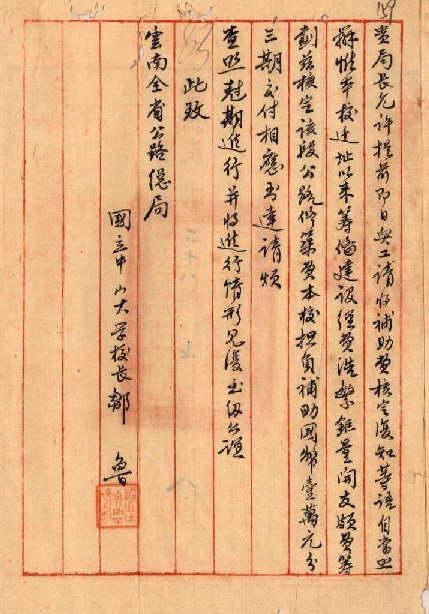 貴局長允許提前即日興工請将補助費核定復知等語自當照
辦惟本校遷址以来籌備建設經費浩繁錐量開支頗費籌
劃茲核定該段公路修築費本校担負補助國幣壹萬元分
三期交付相應函達請煩
查照尅期進行并将進行情形見復至紉公誼
此致
雲南全省公路總局
國立中山大学校長鄒魯